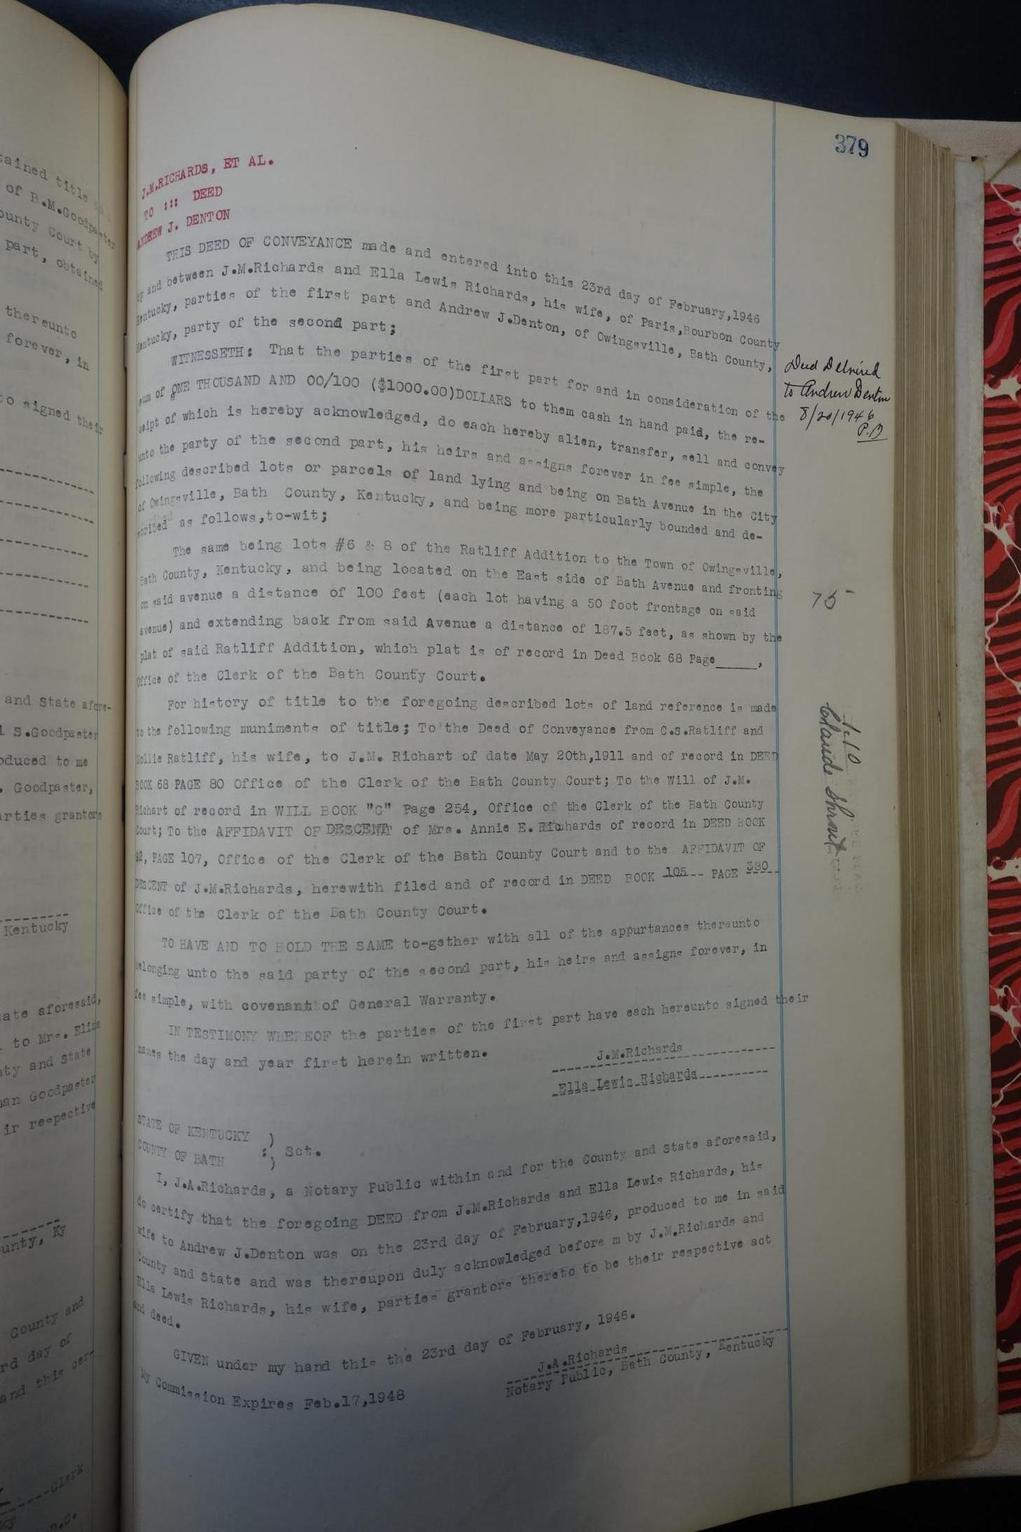 379
J.M.RICHARDS, ET AL.
TO ::: DEED
ANDREW J. DENTON
THIS DEED OF CONVEYANCE made and entered into this 23rd day of February,1946
by and between J.M.Richards and Ella Lewis Richards, his wife, of Paris,Bourbon County
Kentucky, parties of the first part and Andrew J.Denton, of Owingsville, Bath County,
Kentucky, party of the second part;
WITNESSETH: That the parties of the first part for and in consideration of the
sum of ONE THOUSAND AND 00/100 ($1000.00)DOLLARS to them cash in hand paid, the re-
ceipt of which is hereby acknowledged, do each hereby alien, transfer, sell and convey
unto the party of the second part, his heirs and assigns forever in fee simple, the
following described lots or parcels of land lying and being on Bath Avenue in the City
of Owingsville, Bath County, Kentucky, and being more particularly bounded and de-
scribed as follows,to-wit;
The same being lots #6 & 8 of the Ratliff Addition to the Town of Owingsville,
Bath County, Kentucky, and being located on the East side of Bath Avenue and fronting
on said avenue a distance of 100 feet (each lot having a 50 foot frontage on said
avenue) and extending back from said Avenue a distance of 187.5 feet, as shown by the
plat of said Ratliff Addition, which plat is of record in Deed Book 68 Page_____,
Office of the Clerk of the Bath County Court.
For history of title to the foregoing described lots of land reference is made
to the following muniments of title; To the Deed of Conveyance from C.S.Ratliff and
Mollie Ratliff, his wife, to J.M. Richart of date May 20th,1911 and of record in DEED
BOOK 68 PAGE 80 Office of the Clerk of the Bath County Court; To the Will of J.M.
Richart of record in WILL BOOK "G" Page 254, Office of the Clerk of the Bath County
Court; To the AFFIDAVIT OF DESCENT of Mrs. Annie E. Richards of record in DEED BOOK
92, PAGE 107, Office of the Clerk of the Bath County Court and to the AFFIDAVIT OF
DESCENT of J.M.Richards, herewith filed and of record in DEED BOOK 105 PAGE 380
Office of the Clerk of the Bath County Court.
TO HAVE AND TO HOLD THE SAME to-gether with all of the appurtances thereunto
belonging unto the said party of the second part, his heirs and assigns forever, in
fee simple, with covenant of General Warranty.
IN TESTIMONY WHEREOF the parties of the first part have each hereunto signed their
names the day and year first herein written.
J.M.Richards
Ella Lewis Richards
STATE OF KENTUCKY )
COUNTY OF BATH :) Sct.
I, J.A.Richards, a Notary Public within and for the County and State aforesaid,
do certify that the foregoing DEED from J.M.Richards and Ella Lewis Richards, his
wife to Andrew J.Denton was on the 23rd day of February,1946, produced to me in said
County and State and was thereupon duly acknowledged before m by J.M.Richards and
Ella Lewis Richards, his wife, parties grantors thereto to be their respective act
and deed.
GIVEN under my hand this the 23rd day of February, 1946.
J.A.Richards
Notary Public, Bath County, Kentucky
My Commission Expires Feb.17,1948
Deed Delivired
to Andrew Denton
8/20/1946
P.D
75
1.10
Claude Shrout